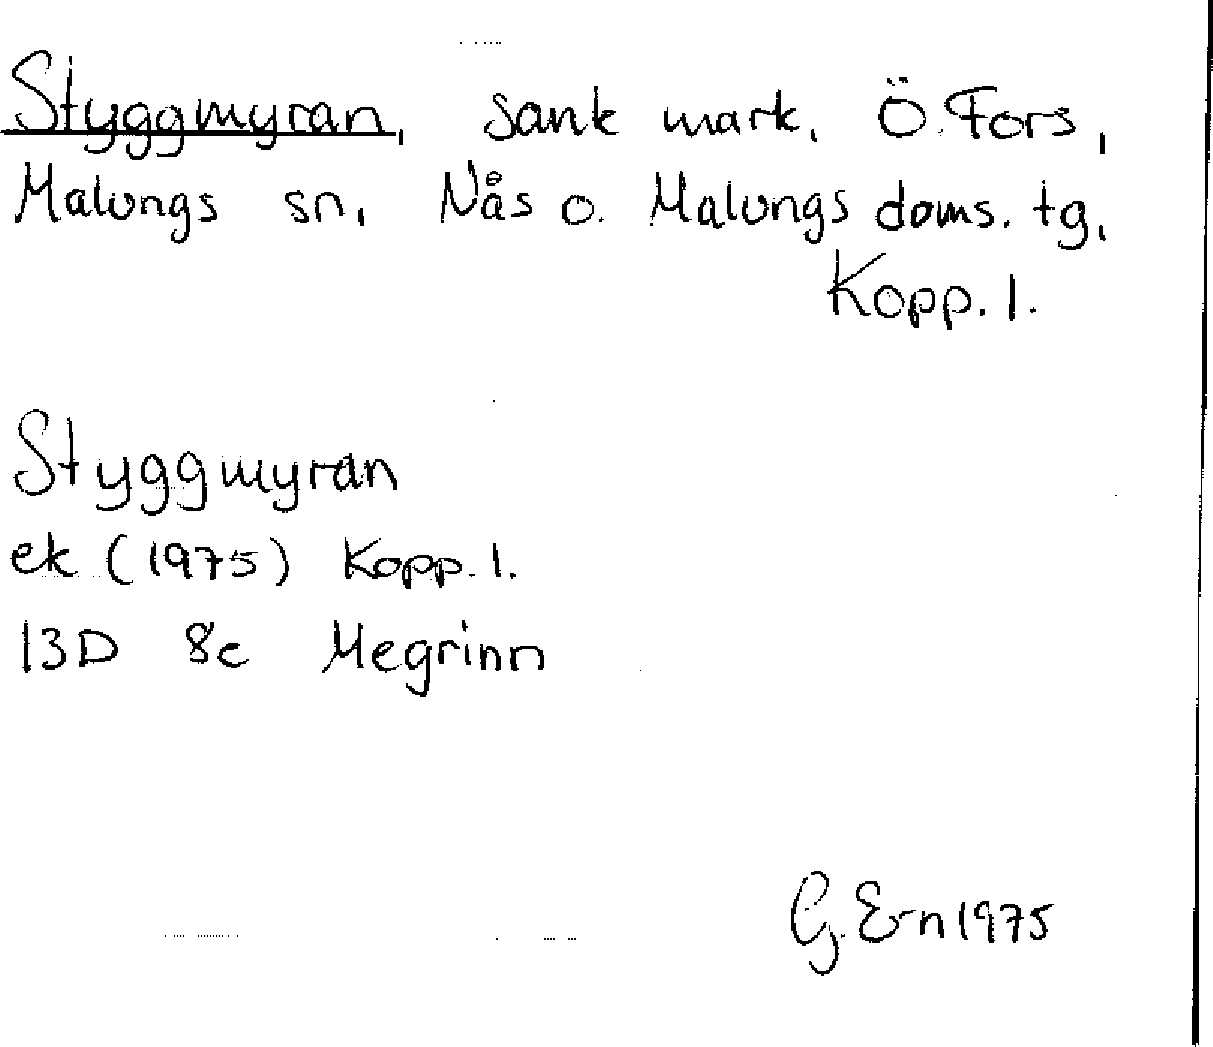 Styggmyran, sank mark, Ö. Fors,
Malungs sn, Nås o. Malungs doms. tg,
Kopp. l.
Styggmyran
ek (1975) Kopp. l.
13D 8c Megrinn
G. Ern 1975